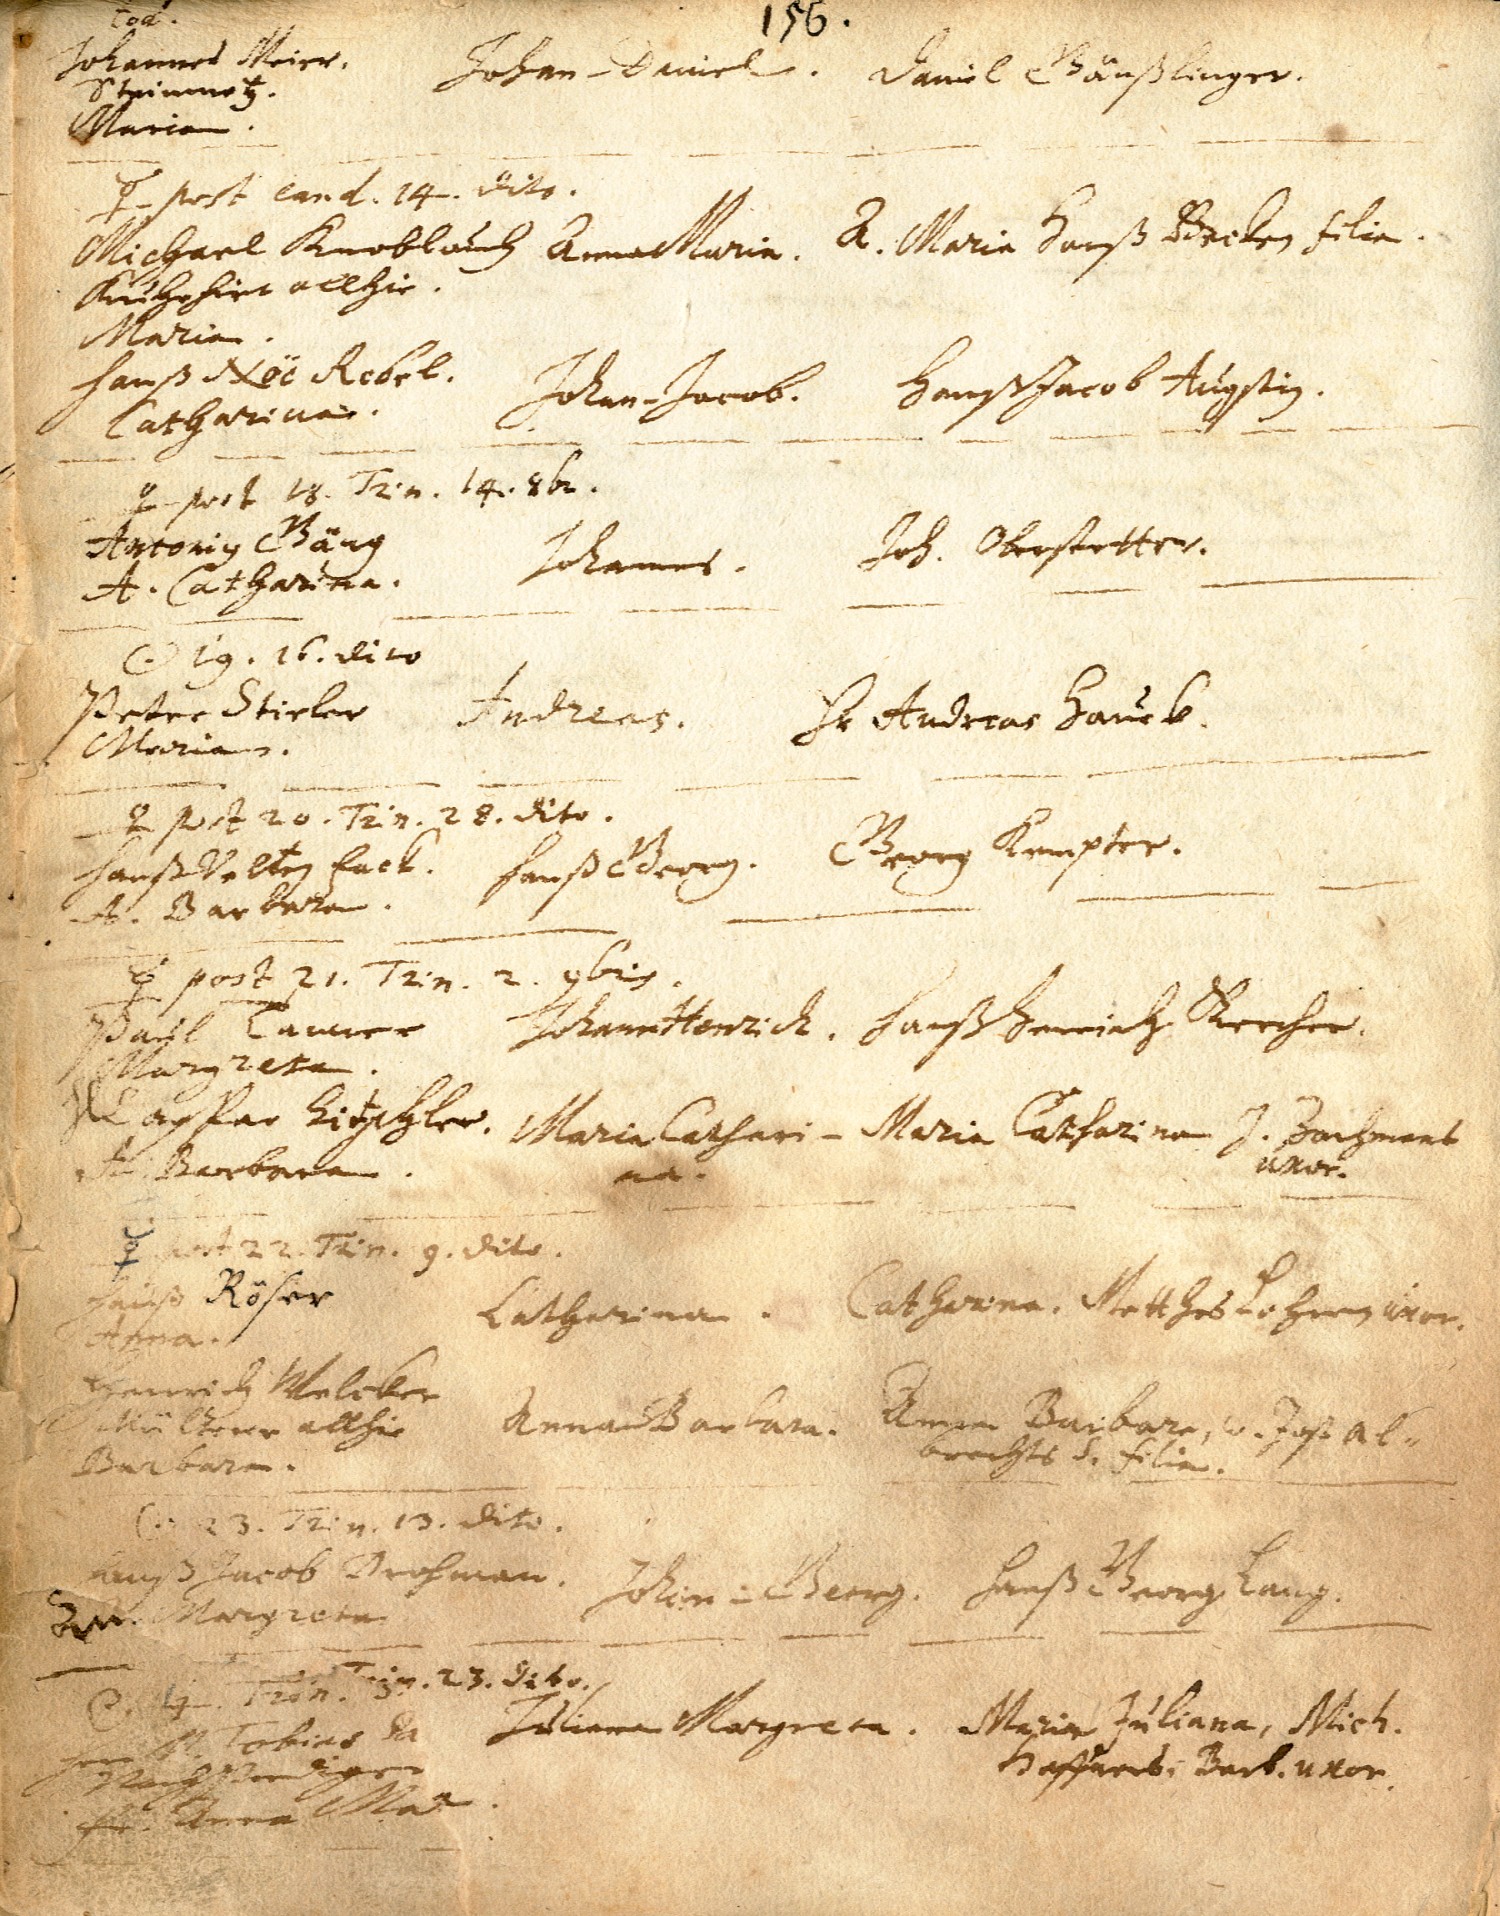 156.
eod.
Johannes Meier. Johan-Daniel. Daniel Gäußlinger.
Steinmetz.
Maria.
☿ post eand. 14. dito.
Michael Knoblauch Anna Maria. A. Maria Hanß Becken filia.
Kuhehirt allhie.
Maria.
Hanß Noë Rebel. Johan-Jacob. Hanß Jacob Augstin.
Catharina.
♀ post 18. Trin. 14. 8br.
Antonig Gäng Johannes. Joh. Oberstetter.
A. Catharina.
☉ 19. 16. dito
Peter Stieler Andreas. Hr Andreas Hauck.
Maria.
♀ post 20. Trin. 28. dito.
Hanß Velten Fack. Hanß Georg. Georg Kempter.
A. Barbara.
☿ post 21. Trin. 2. 9bris.
Paul Johann Henrich. Hanß Henrich Kercher.
Margreta.
Caspar Maria Cathari- Maria Catharina J. Bachmans
A. Barbara. na. uxor.
☿ post 22. Trin. 9. dito.
Hanß Röser Catharina. Catharina. Matthes Lohren uxor.
Anna.
Henrich Welcker Anna Barbara. Anna Barbara, w. Jost Al-
Müller allhie brechts S. filia.
Barbara.
☉ 23. Trin. 13. dito.
Hanß Jacob Drohman. Johan-Georg. Hanß Georg Lang.
Margreta
☉ Trin. 23. dito.
Tobias Juliana Margreta. Maria Juliana, Mich.
Barb. uxor.
Fr. Anna Mar.